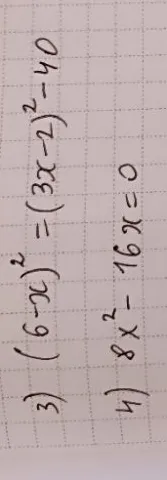 3) (6-x)² = (3x-2)² - 40
4) 8x² - 16x = 0